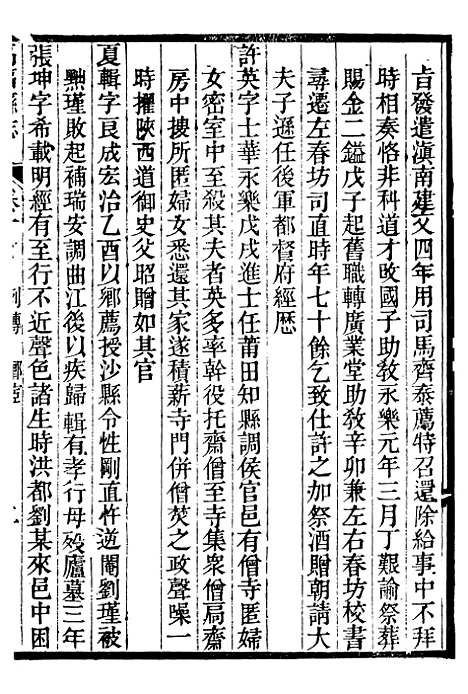 旨發遣滇南建文四年用司馬齊泰薦特召還除給事中不拜
時相奏恪非科道才改國子助教永樂元年三月丁艱諭祭葬
賜金二鎰戊子起舊職轉廣業堂助教辛卯兼左右春坊校書
尋遷左春坊司直時年七十餘乞致仕許之加祭酒贈朝請大
夫子遜任後軍都督府經歷
許英字士華永樂戊戌進士任莆田知縣調侯官邑有僧寺匿婦
女密室中殺其夫者英多率幹役托齋僧至寺集衆僧扃齋
房中搜所匿婦女悉還其家遂積薪寺門併僧焚之政聲噪一
時擢陝西道御史父昭贈如其官
夏輯字艮成宏治乙酉以鄉薦授沙縣令性剛直忤逆閹劉瑾被
黜瑾敗起補瑞安調曲江後以疾歸輯有孝行母殁廬墓三年
張坤字希載明經有至行不近聲色諸生時洪都劉某來邑中困
縣志
列傳
二